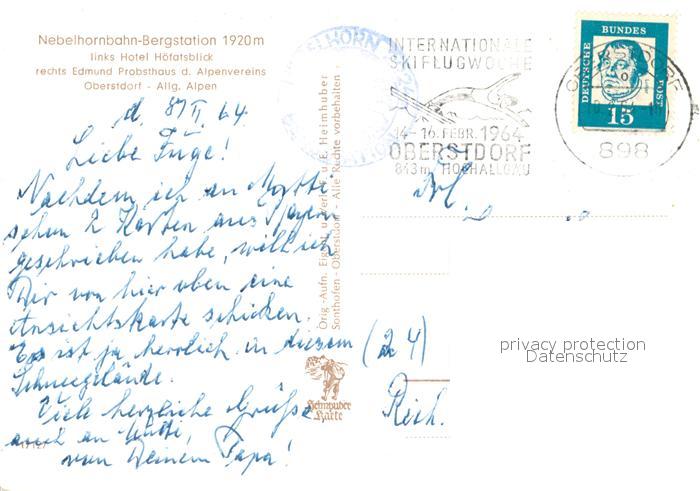 Nebelhornbahn-Bergstation 1920m
links Hotel Höfatsblick
rechts Edmund Probsthaus d. Alpenvereins
Oberstdorf - Allg. Alpen
d. 8. II. 64.
Liebe Inge!
Nachdem ich an
schon 2 Karten aus Bayern
geschrieben habe, will ich
Dir von hier oben eine
Ansichtskarte schicken.
Es ist ja herrlich in diesem
Schneegelände.
Viele herzliche Grüße
auch an Mutti,
von Deinem Papa!
Orig.-Aufn. Eigent. u. Verlag u. E. Heimhuber
Sonthofen - Oberstdorf - Alle Rechte vorbehalten
Heimhuber
Karte
INTERNATIONALE
SKIFLUGWOCHE
14.-16. FEBR. 1964
OBERSTDORF
843m HOCHALLGÄU
DEUTSCHE BUNDESPOST
15
898
(24)
privacy protection
Datenschutz